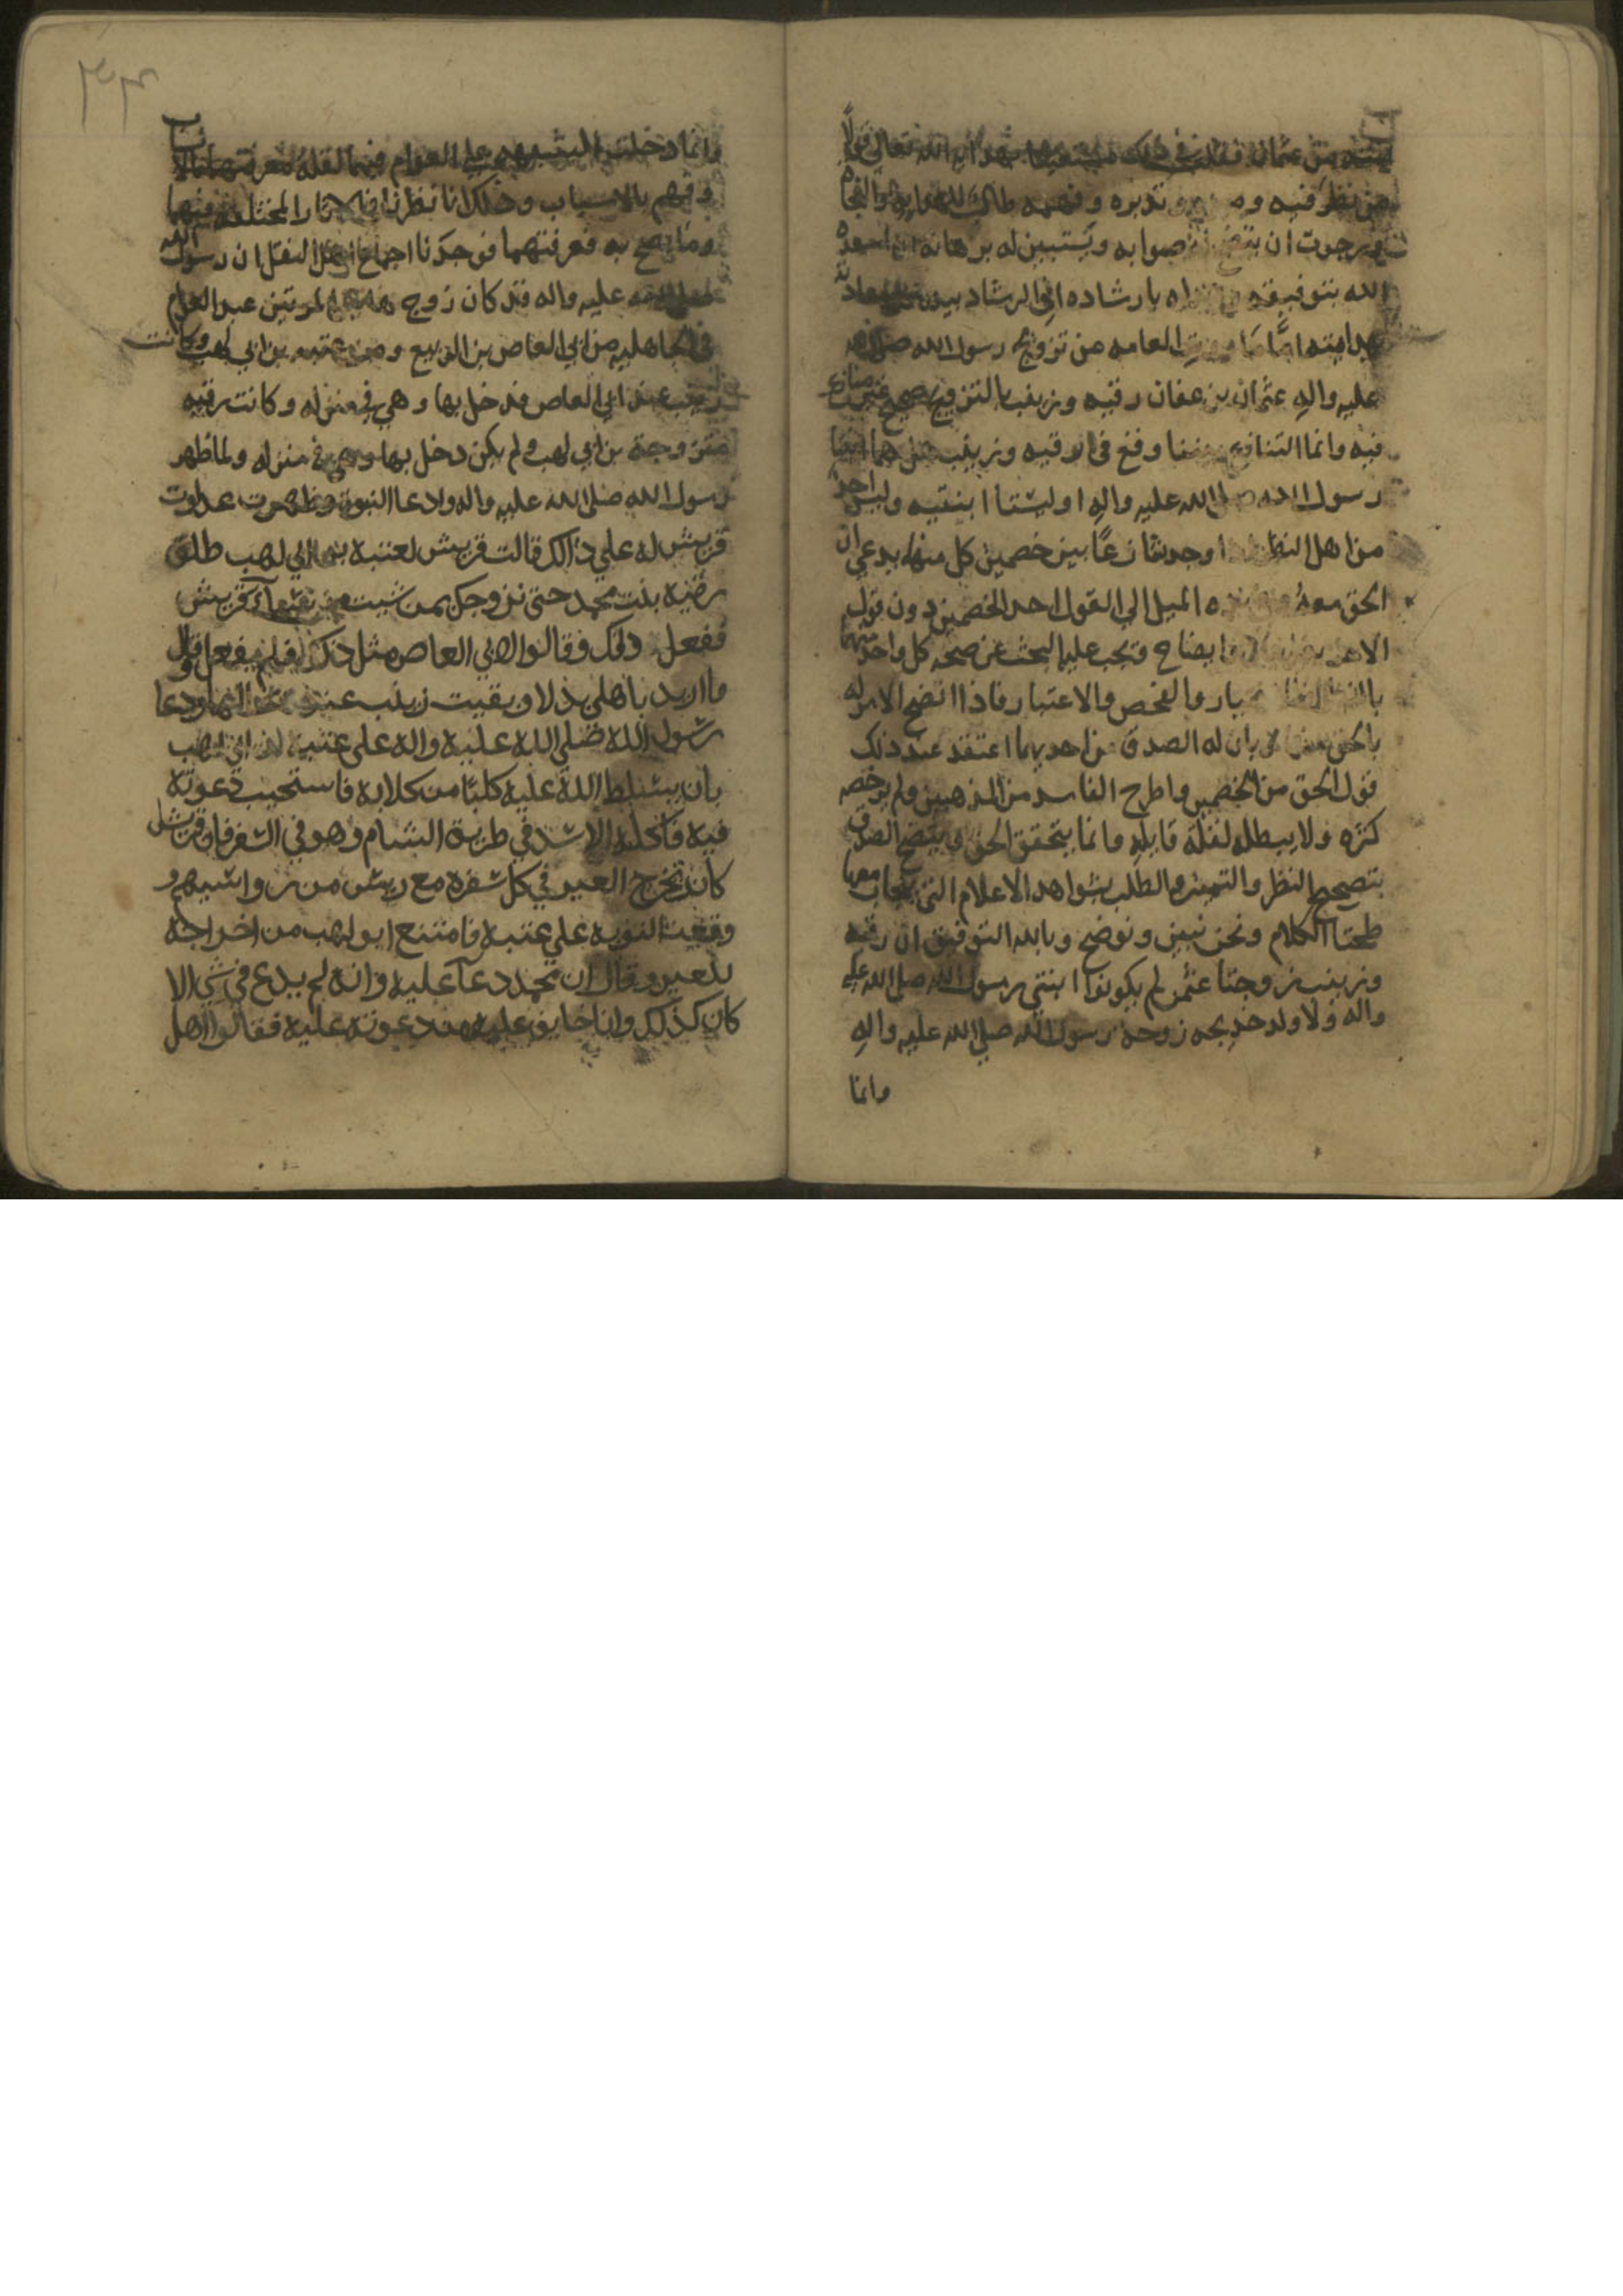 ابنتيه من عثمان فقلت في ذلك بعد الله تعالى قولًا
من نظر فيه وتدبره وفهمه طالبًا النجاة
رجوت ان يتضح صوابه ويستبين له برهانه ان اسعده
الله بتوفيقه بارشاده الي الرشاد
بهدايته اما ما العامه من تزويج رسول الله صلى الله
عليه واله عثمان بن عفان رقيه وزينب بالتزويج صحيح غير متنازع
فيه وانما التنازع بيننا وقع في رقيه وزينب هل هما ابنتا
رسول الله صلى الله عليه واله او ليستا ابنتيه وليس لاحد
من اهل النظر اذا وجد تنازعًا بين خصمين كل منهما يدعي ان
الحق معه الميل الي القول احد الخصمين دون قول
الاخر ايضاح ويجب عليه البحث عن صحه كل واحد منهما
بالنظر والفحص والاعتبار فاذا اتضح الامر له
بالحق بان له الصدق من احديهما اعتقد عند ذلك
قول الحق من الخصمين واطرح الفاسد من المذهبين ولم يدحضه
كثره ولا يبطله لقلة قايله وانما يتحقق الحق ويتضح الصدق
بتصحيح النظر والتميز والطلب بشواهد الاعلام التي معها
الكلام ونحن نبين ونوضح وبالله التوفيق ان رقيه
وزينب زوجتا عثمن لم يكونوا ابنتي رسول الله صلى الله عليه
واله ولا ولد خديجه زوجة رسول الله صلي الله عليه واله
وانما
۲۴۳
وانما دخلت الشبهه علي العوام فيها لقلة معرفتهم بالانساب
وفهم بالاسباب وذلك انا نظرنا في الاثار المختلفه فيهما
وما يصح به معرفتهما فوجدنا اجماع اهل النقل ان رسول الله
صلى الله عليه واله قد كان زوج
في الجاهليه من ابي العاص بن الربيع ومن عتبه بن ابي لهب وكانت
زينب عند ابي العاص قد دخل بها وهي في منزله وكانت رقيه
متزوجة بن ابي لهب ولم يكن دخل بها وهي في منزله ولما ظهر
رسول الله صلى الله عليه واله ودعا النبوة وظهرت عداوت
قريش له علي ذالك قالت قريش لعتبة بن ابي لهب طلق
رقية بنت محمد حتى نزوجك بمن شيت من قريش
ففعل ذلك وقالوا لابي العاص مثل ذلك فلم يفعل وقال
ما اريد باهلي بدلا وبقيت زينب عنده ودعا
رسول اللة صلى اللة علية واله على عتبه ابن ابي لهب
بان يسلط اللة علية كلبًا من كلابة فاستجيب دعوتة
فية فاكلة الاسد في طريق الشام وهو في السفر
كان تخرج العير في كل سفرة مع ريس من رواسيهم و
وقعت النوبة علي عتبة فامتنع ابو لهب من اخراجة
للعير وقال ان محمد دعا علية وانة لم يدع في شي الا
كان كذلك وانا خايف علية من دعوتة علية فقالوا اهل